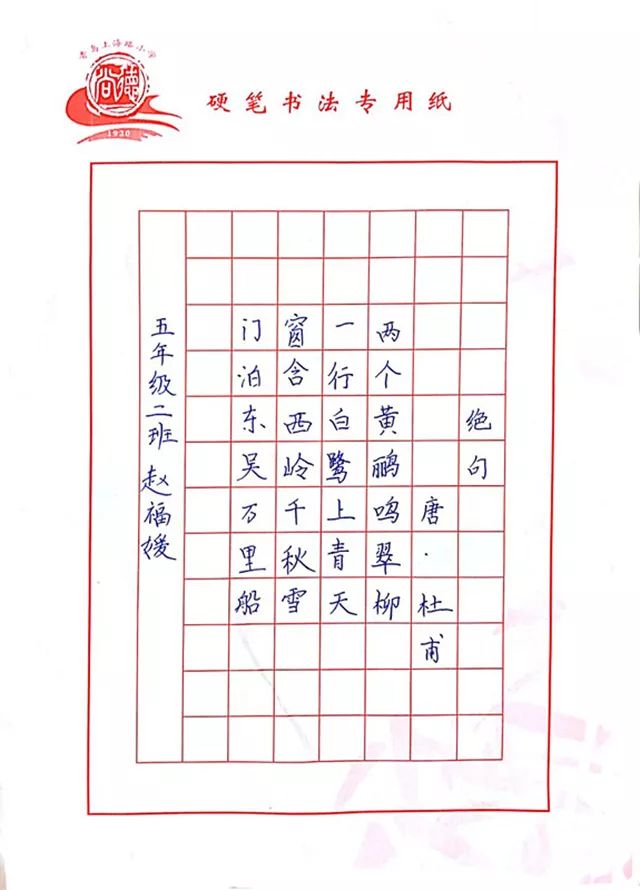 青岛上海路小学
尚德
1920
硬笔书法专用纸
绝句
唐·杜甫
两个黄鹂鸣翠柳
一行白鹭上青天
窗含西岭千秋雪
门泊东吴万里船
五年级二班 赵福媛